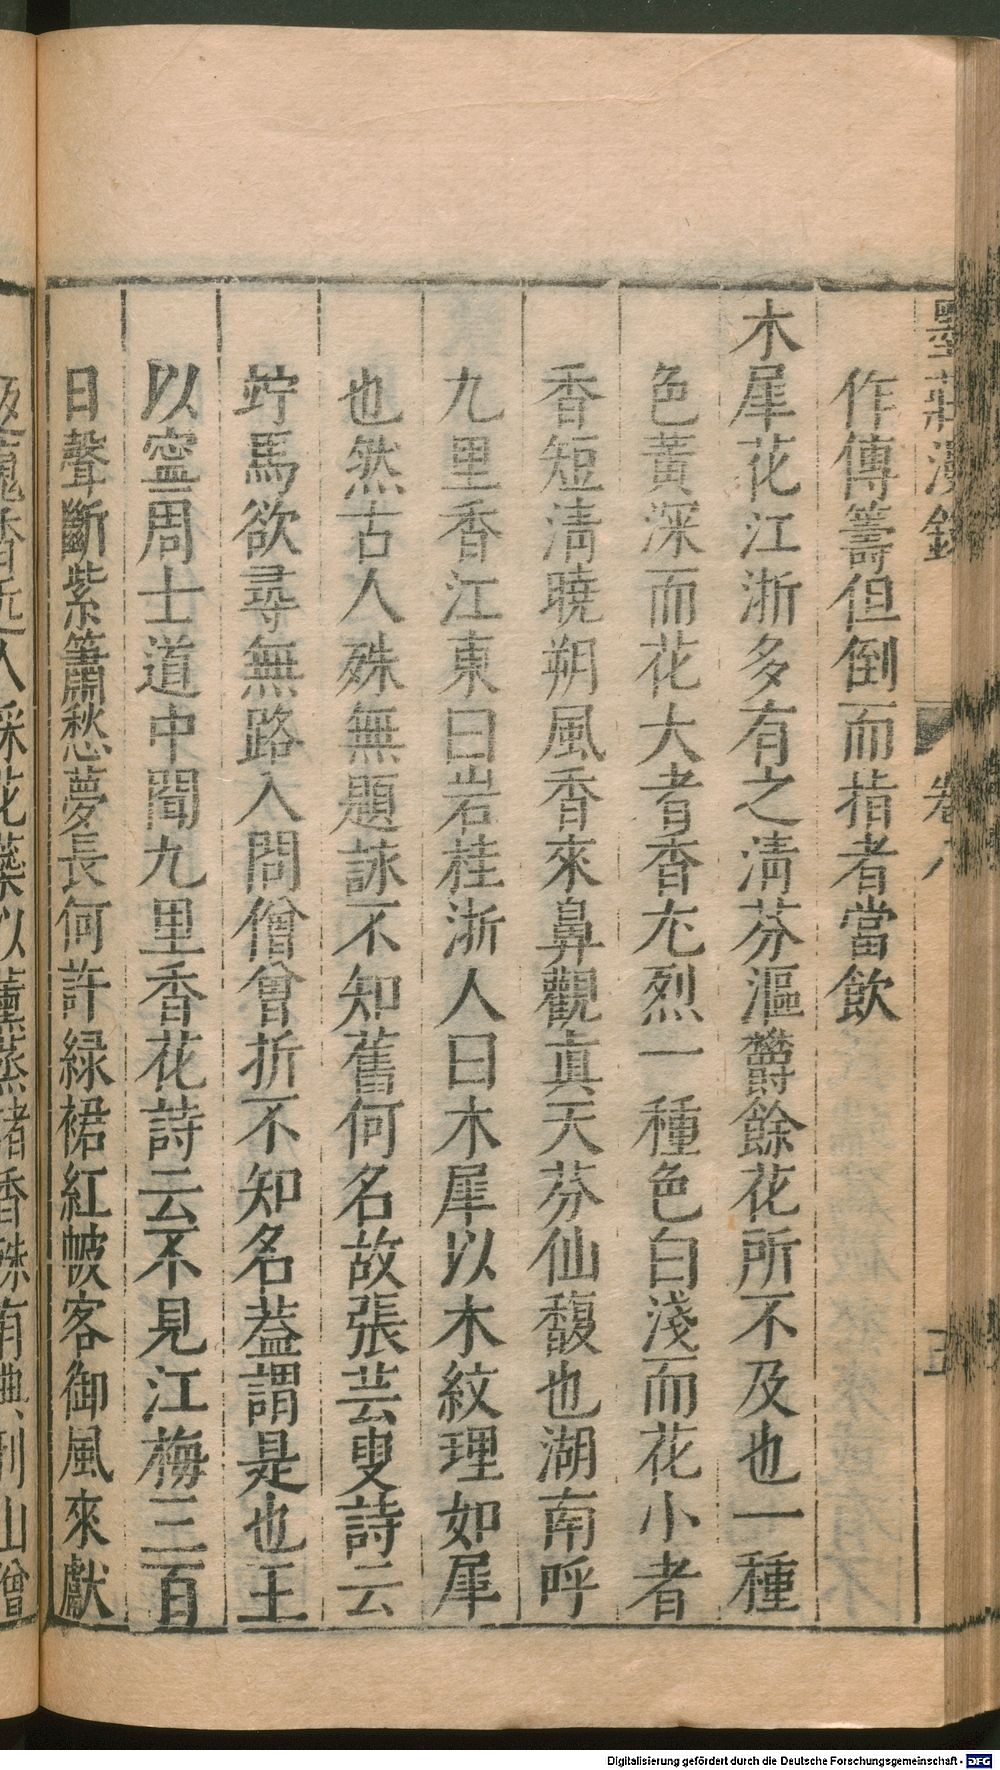 墨莊漫錄 卷八 五
作傳籌但倒而指者當飲
木犀花江浙多有之清芬漚鬱餘花所不及也一種
色黃深而花大者香尢烈一種色白淺而花小者
香短清曉朔風香來鼻觀真天芬仙馥也湖南呼
九里香江東曰岩桂浙人曰木犀以木紋理如犀
也然古人殊無題詠不知舊何名故張芸叟詩云
竚馬欲尋無路入問僧曾折不知名葢謂是也王
以寧周士道中聞九里香花詩云不見江梅三百
日聲斷紫簫愁夢長何許緑裙紅帔客御風來獻
返魂香近人採花蘂以薰蒸諸香殊有典刑山僧
Digitalisierung gefördert durch die Deutsche Forschungsgemeinschaft - DFG